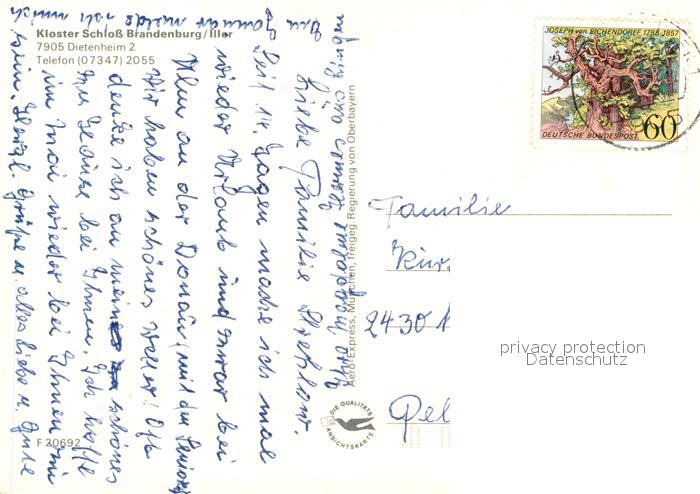 Kloster Schloß Brandenburg/Iller
7905 Dietenheim 2
Telefon (07347) 2055
Liebe Familie Strehlow.
Seit 14. Tagen mache ich mal
wieder Urlaub und zwar bei
Ulm an der Donau (mit den Senioren
Wir haben schönes Wetter! Oft
denke ich an mein schönes
zu Hause bei Ihnen. Ich hoffe
im Mai wieder bei Ihnen
sein. Herzl. Grüße u. alles Liebe u. Gute
ich mich
Aero-Express, München, freigeg. Regierung von Oberbayern
F 20692
DIE QUALITÄTS
ANSICHTSKARTE
JOSEPH von EICHENDORFF 1788-1857
DEUTSCHE BUNDESPOST
60
Familie
Kur
2430
Pel
privacy protection
Datenschutz